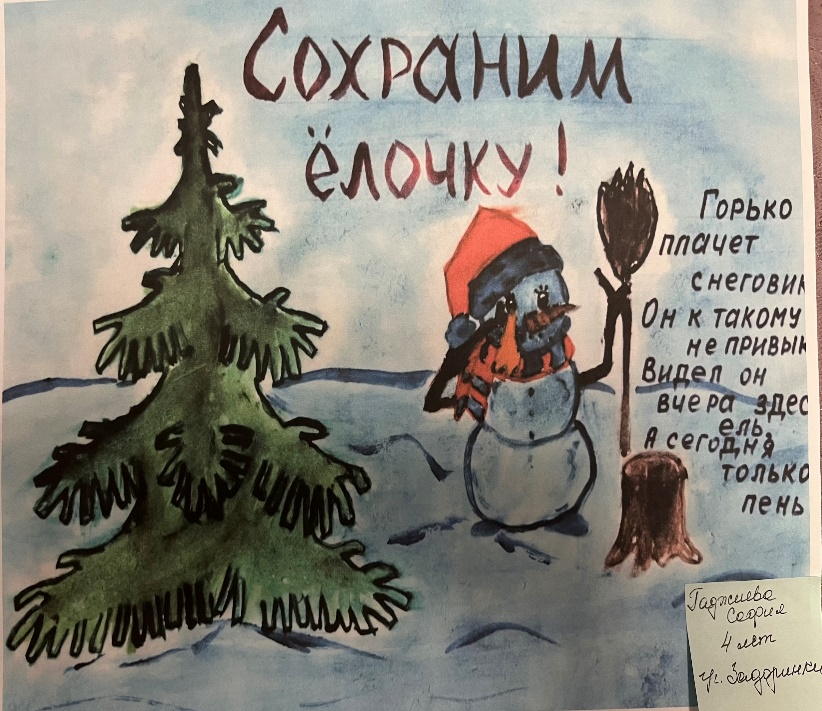 Сохраним
ёлочку!
Горько
плачет
снеговик
Он к такому
не привык
Видел он
вчера здес
ель,
А сегодня
только
пень
Гаджиева
София
4 лет
гр. Задоринки